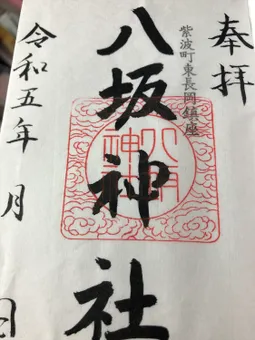 奉拝
紫波町東長岡鎮座
八坂神社
令和五年 月 日